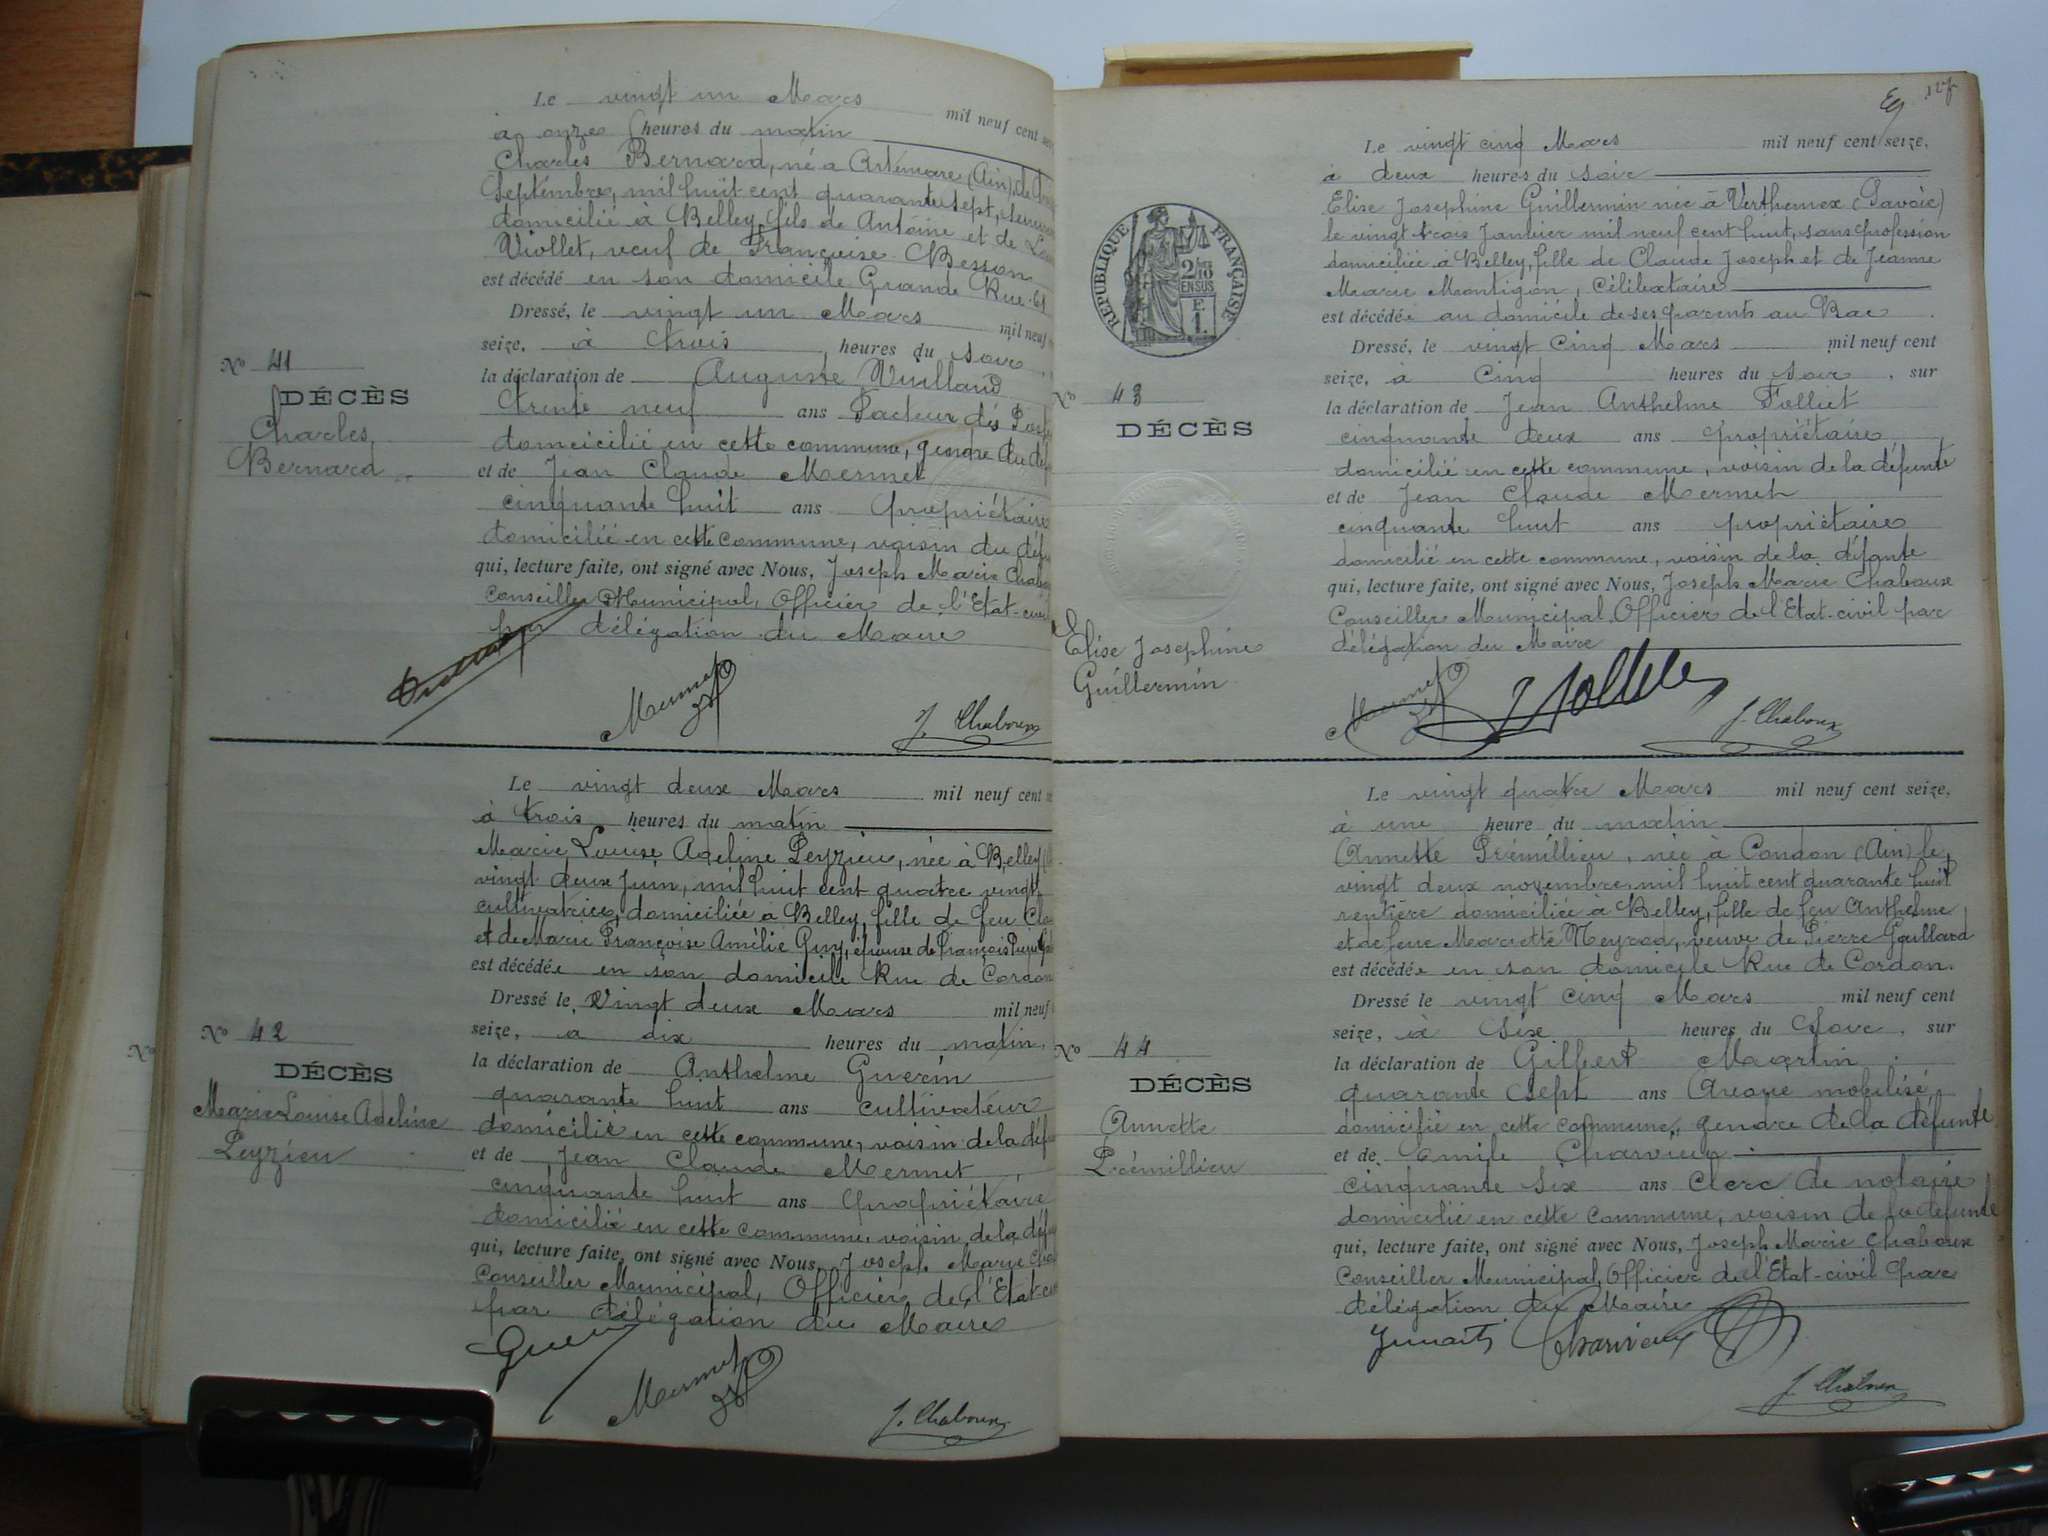 Le vingt un Mars mil neuf cent
à onze heures du matin
Charles Bernard, né à Artemare (Ain) le
Septembre, mil huit cent quarante sept,
domicilié à Belley, fils de Antoine et de
Viollet, veuf de Françoise Besson
est décédé en son domicile Grande Rue 61
Dressé, le vingt un Mars mil neuf
seize, à trois heures du soir
la déclaration de Auguste Vuilland
trente neuf ans Facteur des
domicilié en cette commune, gendre du
et de Jean Claude Mermet
cinquante huit ans propriétaire
domicilié en cette commune, voisin du
qui, lecture faite, ont signé avec Nous, Joseph Marie
Conseiller Municipal, Officier de l'Etat-
par délégation du Maire
Mermet
J. Chaboux
No 41
DÉCÈS
Charles
Bernard
Le vingt deux Mars mil neuf cent
à trois heures du matin
Marie Louise Adeline Peyzieu, née à Belley
vingt deux Juin, mil huit cent quatre vingt,
cultivatrice, domiciliée à Belley, fille de feu
et de Marie Françoise Amélie Guy, épouse de François
est décédée en son domicile Rue de Cordon
Dressé le Vingt deux Mars mil neuf
seize, à dix heures du matin,
la déclaration de Anthelme Guerin
quarante huit ans cultivateur
domicilié en cette commune, voisin de la
et de Jean Claude Mermet
cinquante huit ans propriétaire
domicilié en cette commune, voisin de la
qui, lecture faite, ont signé avec Nous, Joseph Marie
Conseiller Municipal, Officier de l'Etat-
par délégation du Maire
Guerin
Mermet
J. Chaboux
No 42
DÉCÈS
Marie Louise Adeline
Peyzieu
Le vingt cinq Mars mil neuf cent seize,
à deux heures du soir
Elise Josephine Guillermin née à Verthemex (Savoie)
le vingt trois Janvier mil neuf cent huit, sans profession
domiciliée à Belley, fille de Claude Joseph et de Jeanne
Marie Montigon, Célibataire
est décédée au domicile de ses parents au Bac
Dressé, le vingt Cinq Mars mil neuf cent
seize, à Cinq heures du soir, sur
la déclaration de Jean Anthelme Folliet
cinquante deux ans propriétaire
domicilié en cette commune, voisin de la défunte
et de Jean Claude Mermet
cinquante huit ans propriétaire
domicilié en cette commune, voisin de la défunte
qui, lecture faite, ont signé avec Nous, Joseph Marie Chaboux
Conseiller Municipal, Officier de l'Etat-civil par
délégation du Maire
Mermet
J Folliet
J. Chaboux
RÉPUBLIQUE FRANÇAISE
2/10
EN SUS
E.
1.
No 43
DÉCÈS
Elise Josephine
Guillermin
Le vingt quatre Mars mil neuf cent seize,
à une heure du matin
Annette Prémillieu, née à Condon (Ain) le
vingt deux novembre mil huit cent quarante huit
rentière domiciliée à Belley, fille de feu Anthelme
et de feue Mariette Neyrod, veuve de Pierre Gaillard
est décédée en son domicile Rue de Cordon.
Dressé le vingt Cinq Mars mil neuf cent
seize, à Six heures du Soir, sur
la déclaration de Gilbert Martin
quarante sept ans Avoué mobilisé
domicilié en cette commune, gendre de la défunte
et de Emile Charvieux
Cinquante six ans Clerc de notaire
domicilié en cette commune, voisin de la défunte
qui, lecture faite, ont signé avec Nous, Joseph Marie Chaboux
Conseiller Municipal, Officier de l'Etat-civil par
délégation du Maire
Charvieux
J. Chaboux
No 44
DÉCÈS
Annette
Prémillieu